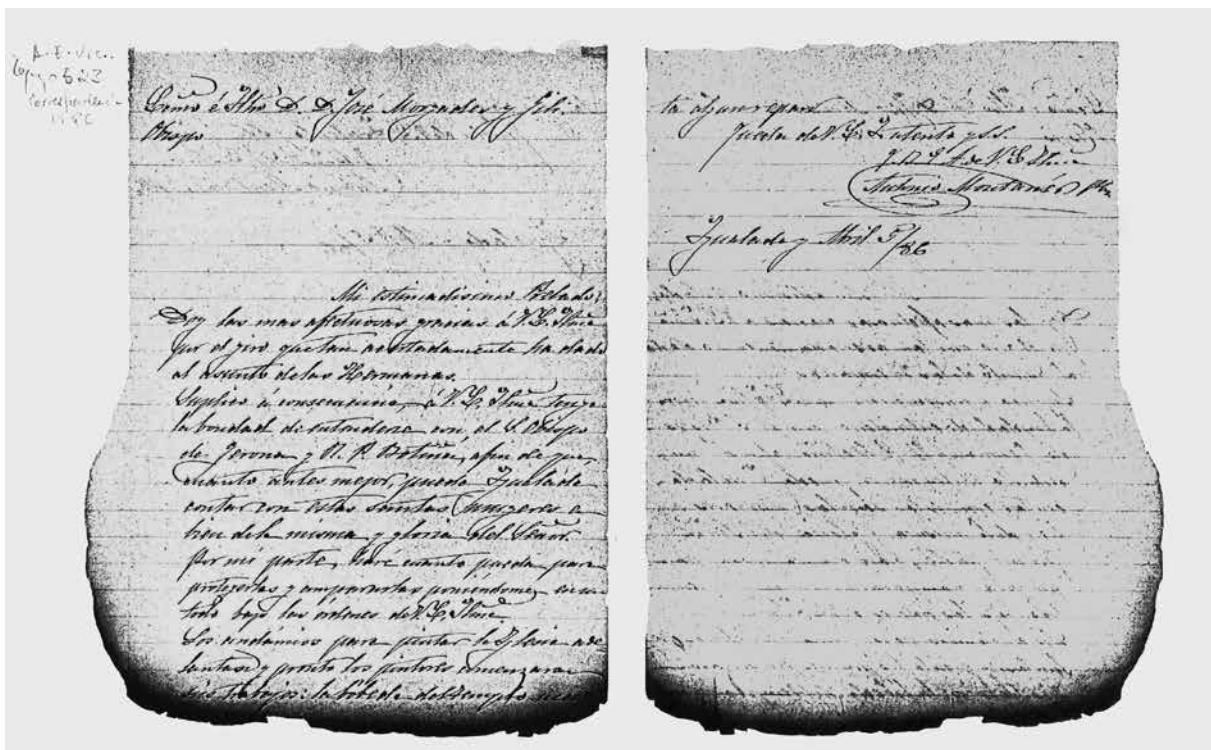 A. E. Vic.
Correspondencia
Excmo é Iltre D. D. José Morgades y Gili.
Obispo
Mi estimadisimo Prelado:
Doy las mas afectuosas gracias á V. E. Iltma
por el giro que tan acertadamente ha dado
al asunto de las Hermanas.
Suplico en consecuencia, á V. E. Iltma tenga
la bondad de entenderse con el S. Obispo
de Gerona y R. P. Butiñá, afin de que,
cuanto antes mejor, pueda Igualada
contar con estas santas mugeres a
bien de la misma y gloria del Señor.
Por mi parte, haré cuanto pueda para
protegerlas y ampararlas poniéndome, en un
todo bajo las ordenes de V. E. Iltma.
Los andamios para pintar la Iglesia ade
lantan y pronto los pintores comenzaran
sus trabajos: la bóveda del templo
ta algun reparo
Queda de V. E. I. atento y s.s.
q. b. s. A. de V. E. Iltma
Antonio Montaner Pbro
Igualada y Abril 5/86